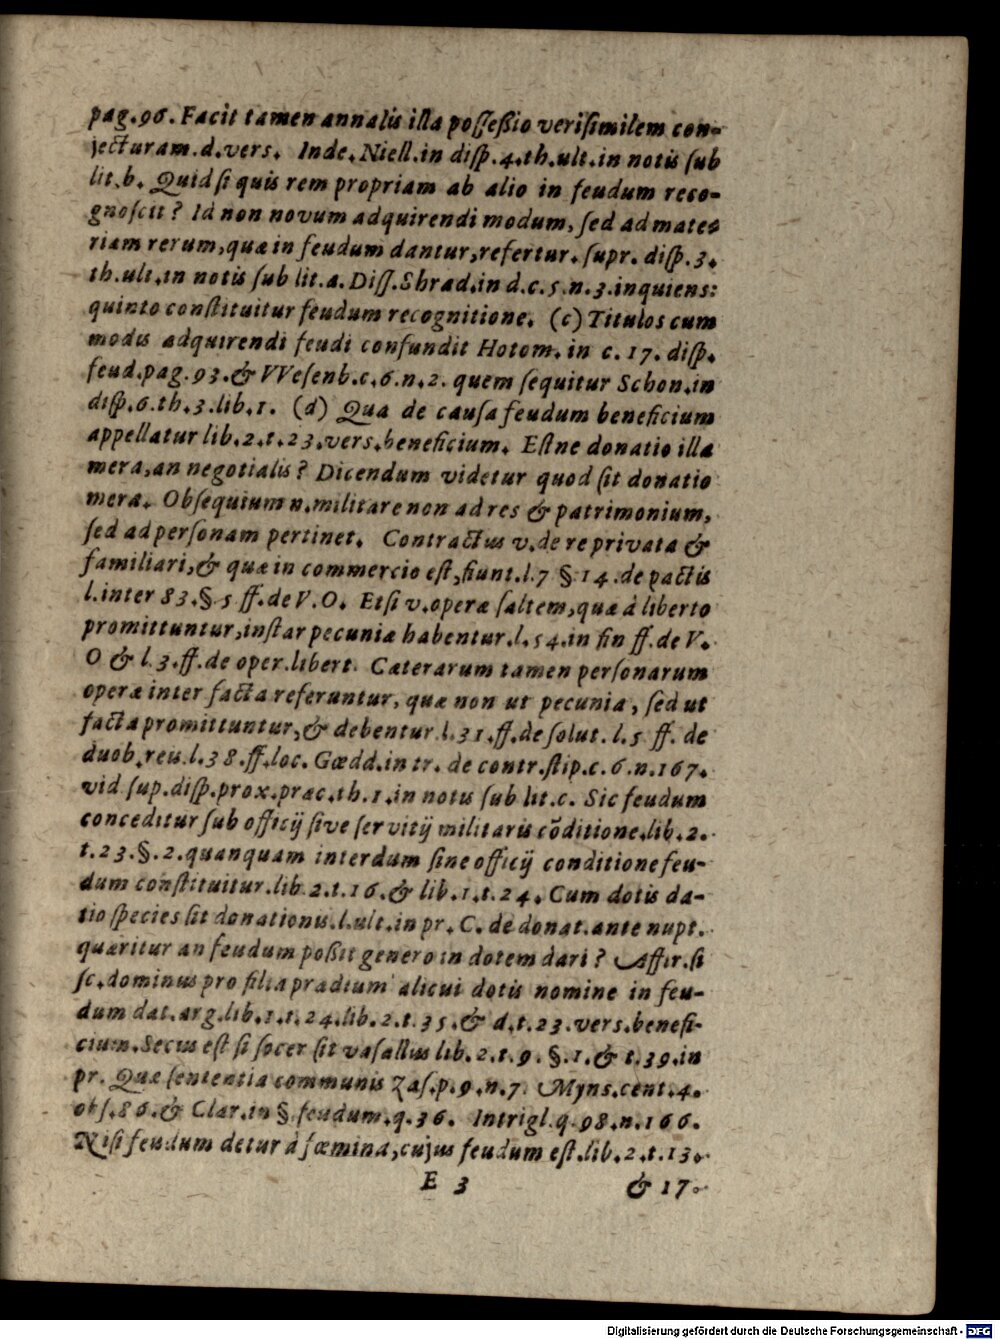 pag.96. Facit tamen annalis illa possessio verisimilem con-
jecturam.d.vers. Inde. Niell.in disp.4.th.ult.in notis sub
lit.b. Quid si quis rem propriam ab alio in feudum reco-
gnoscit? Id non novum adquirendi modum, sed ad mate-
riam rerum, quæ in feudum dantur, refertur. supr. disp.3.
th.ult.in notis sub lit.a. Diss. Shrad.in d.c.5.n.3.inquiens:
quinto constituitur feudum recognitione. (c) Titulos cum
modis adquirendi feudi confundit Hotom. in c. 17. disp.
feud.pag.93.& VVesenb.c.6.n.2. quem sequitur Schon.in
disp.6.th.3.lib.1. (d) Qua de causa feudum beneficium
appellatur lib.2.t.23.vers.beneficium. Estne donatio illa
mera, an negotialis? Dicendum videtur quod sit donatio
mera. Obsequium n.militare non ad res & patrimonium,
sed ad personam pertinet. Contractus v.de re privata &
familiari, & quæ in commercio est, fiunt.l.7 §.14.de pactis
l.inter 83.§ 5 ff.de V.O. Etsi v.operæ saltem, quæ à liberto
promittuntur, instar pecuniæ habentur.l.54.in fin ff.de V.
O & l.3.ff.de oper.libert. Cæterarum tamen personarum
operæ inter facta referuntur, quæ non ut pecunia, sed ut
facta promittuntur, & debentur.l.31.ff.de solut. l.5 ff. de
duob.reis.l.38.ff.loc. Gœdd.in tr. de contr.stip.c.6.n.167.
vid sup.disp.prox.præc.th.1.in notis sub lit.c. Sic feudum
conceditur sub officij sive servitij militaris cõditione.lib.2.
t.23.§.2.quanquam interdum sine officij conditione feu-
dum constituitur.lib.2.t.16.& lib.1.t.24. Cum dotis da-
tio species sit donationis.l.ult.in pr. C. de donat.ante nupt.
quæritur an feudum possit genero in dotem dari? Affir.si
sc.dominus pro filia prædium alicui dotis nomine in feu-
dum dat.arg.lib.1.t.24.lib.2.t.35.& d.t.23.vers.benefi-
cium.Secus est si socer sit vasallus lib.2.t.9.§.1.& t.39.in
pr. Quæ sententia communis Zas.p.9.n.7. Myns.cent.4.
obs.86.& Clar.in §.feudum.q.36. Intrigl.q.98.n.166.
Nisi feudum detur à fœmina, cujus feudum est.lib.2.t.13.
E 3 & 17.
Digitalisierung gefördert durch die Deutsche Forschungsgemeinschaft - DFG